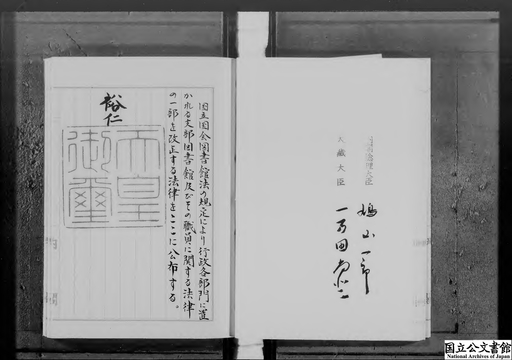 国立国会図書館法の規定により行政各部門に置
かれる支部図書館及びその職員に関する法律
の一部を改正する法律をここに公布する。
裕仁
天皇
御璽
内閣総理大臣
鳩山一郎
大蔵大臣
一万田尚登
国立公文書館
National Archives of Japan